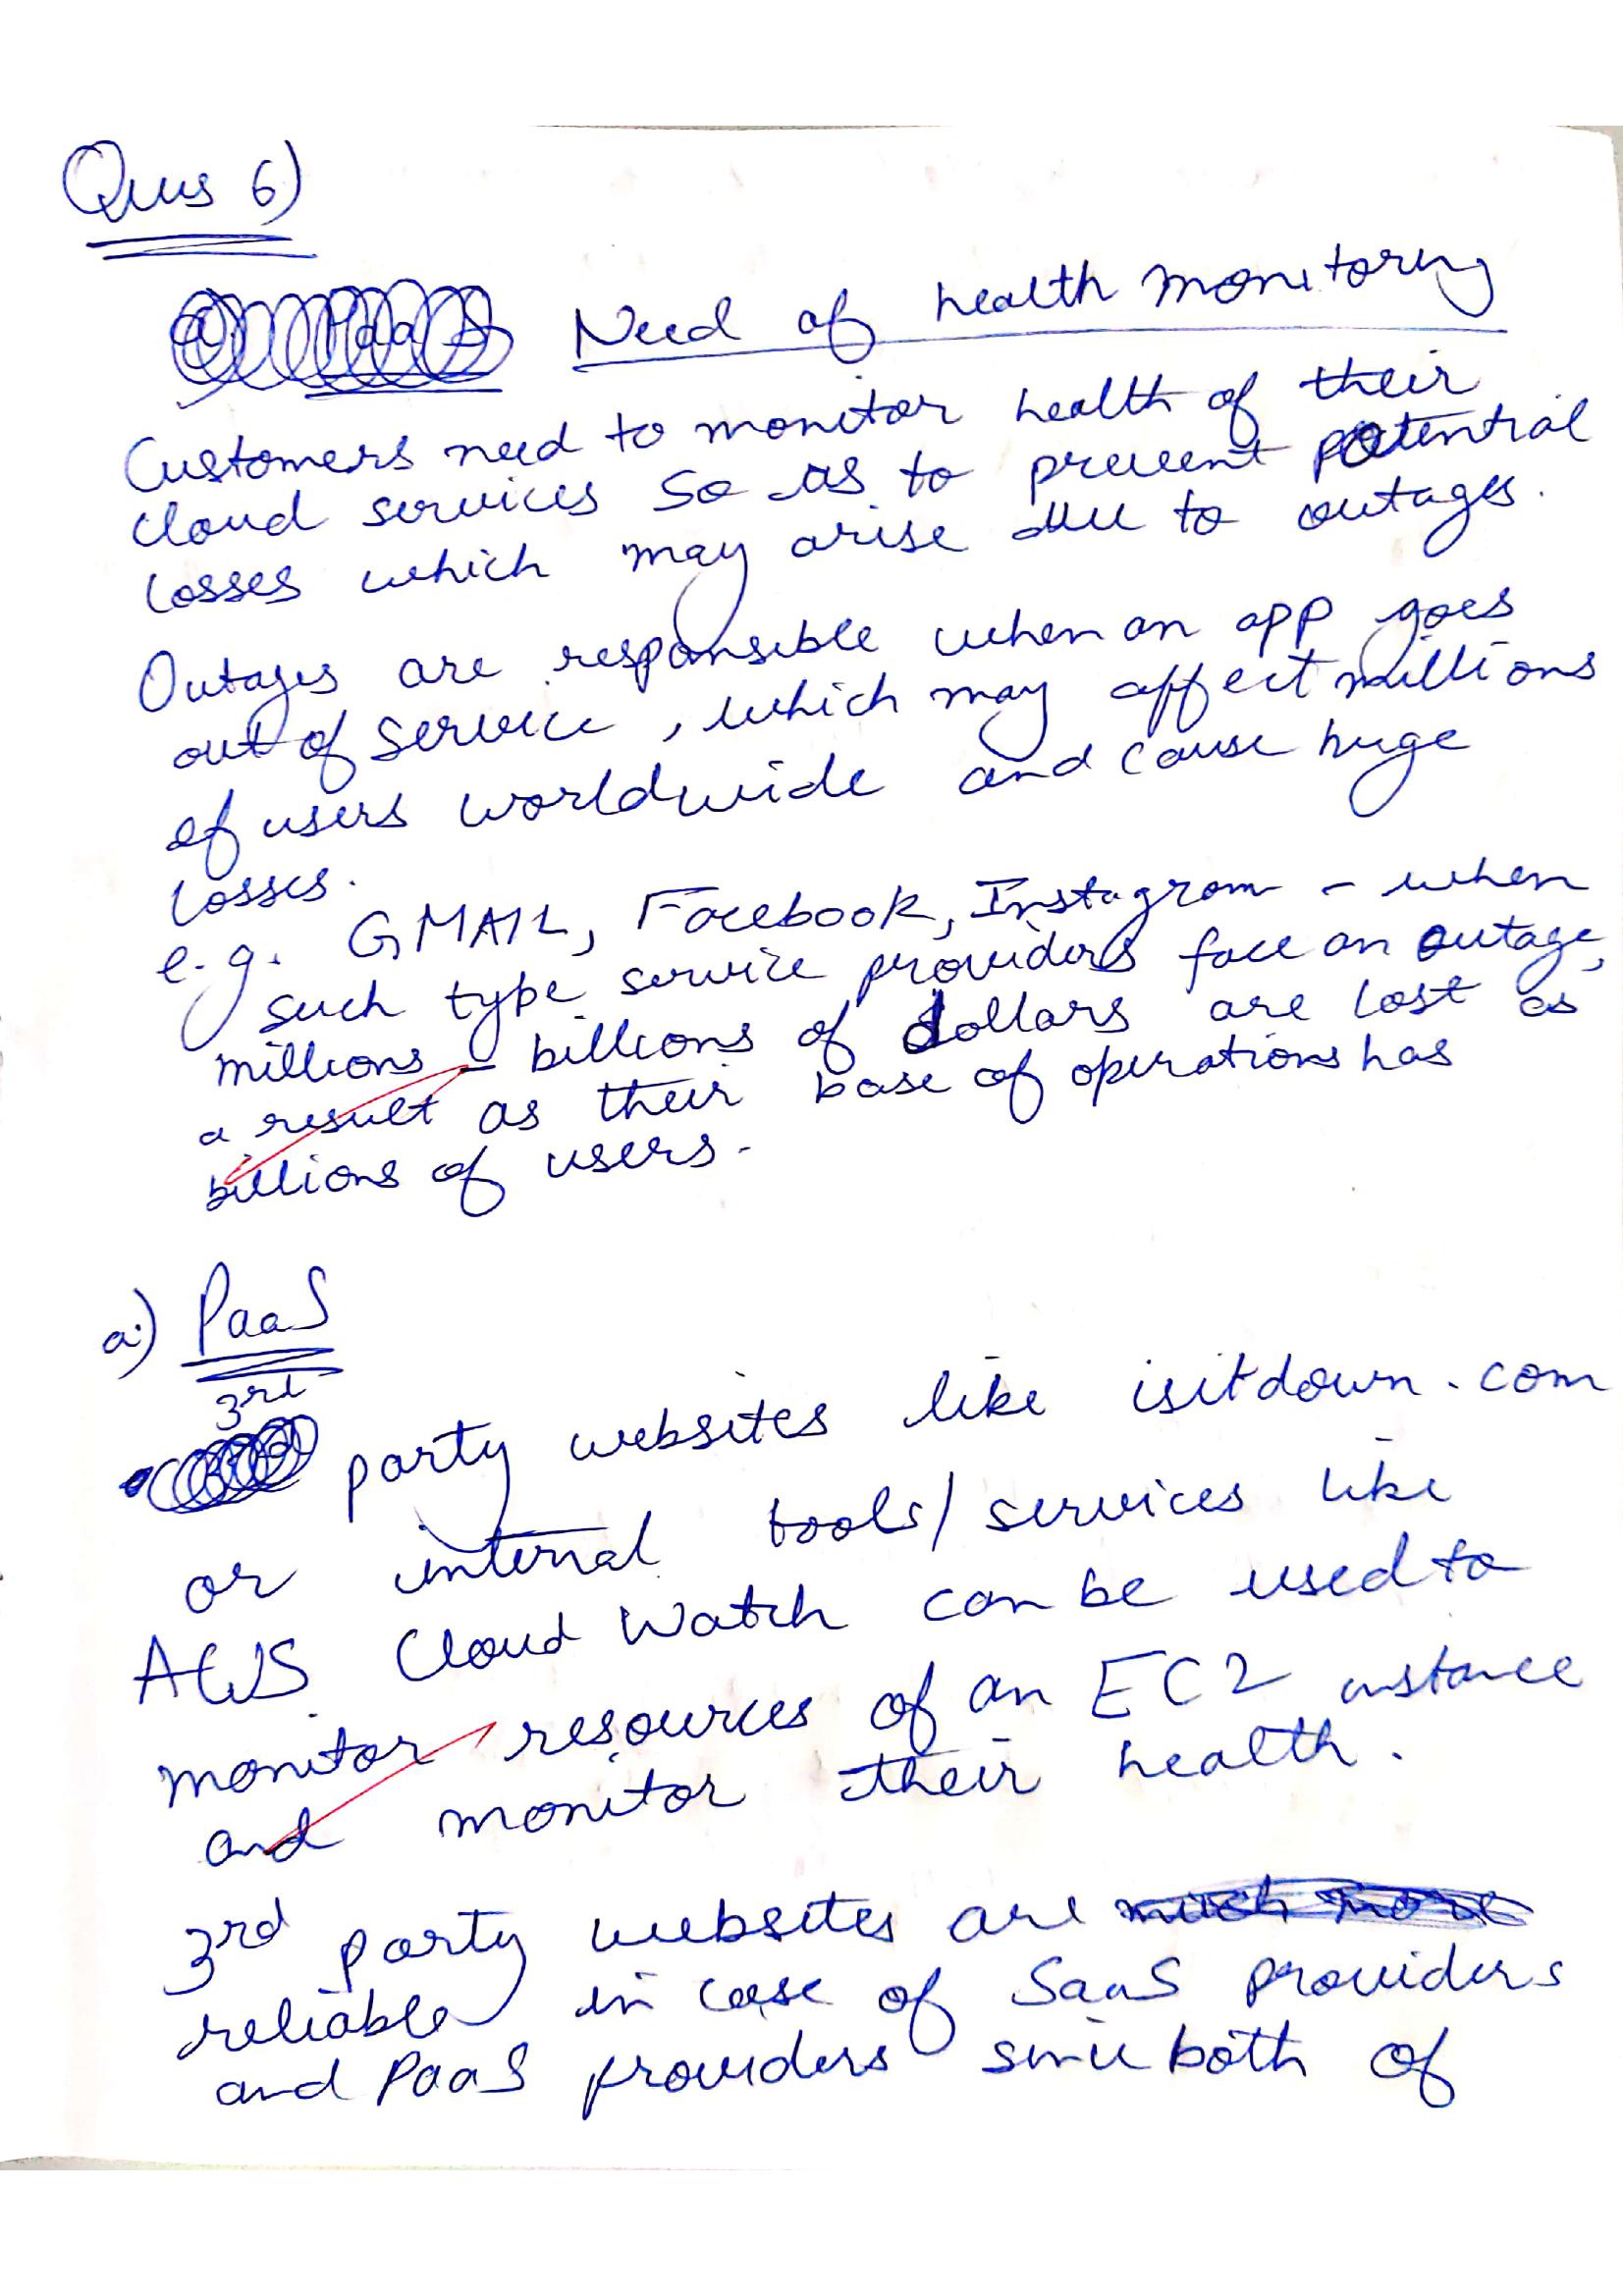 Ques 6)
Need of health monitoring
Customers need to monitor health of their
cloud services so as to prevent potential
losses which may arise due to outages.
Outages are responsible when an app goes
out of service, which may affect millions
of users worldwide and cause huge
losses.
e.g. GMAIL, Facebook, Instagram - when
such type service providers face an outage,
millions - billions of dollars are lost as
a result as their base of operations has
billions of users.
a.) PaaS
3rd
party websites like isitdown.com
or internal tools/services like
AWS Cloud Watch can be used to
monitor resources of an EC2 instance
and monitor their health.
3rd party websites are much more
reliable in case of SaaS providers
and PaaS providers since both of